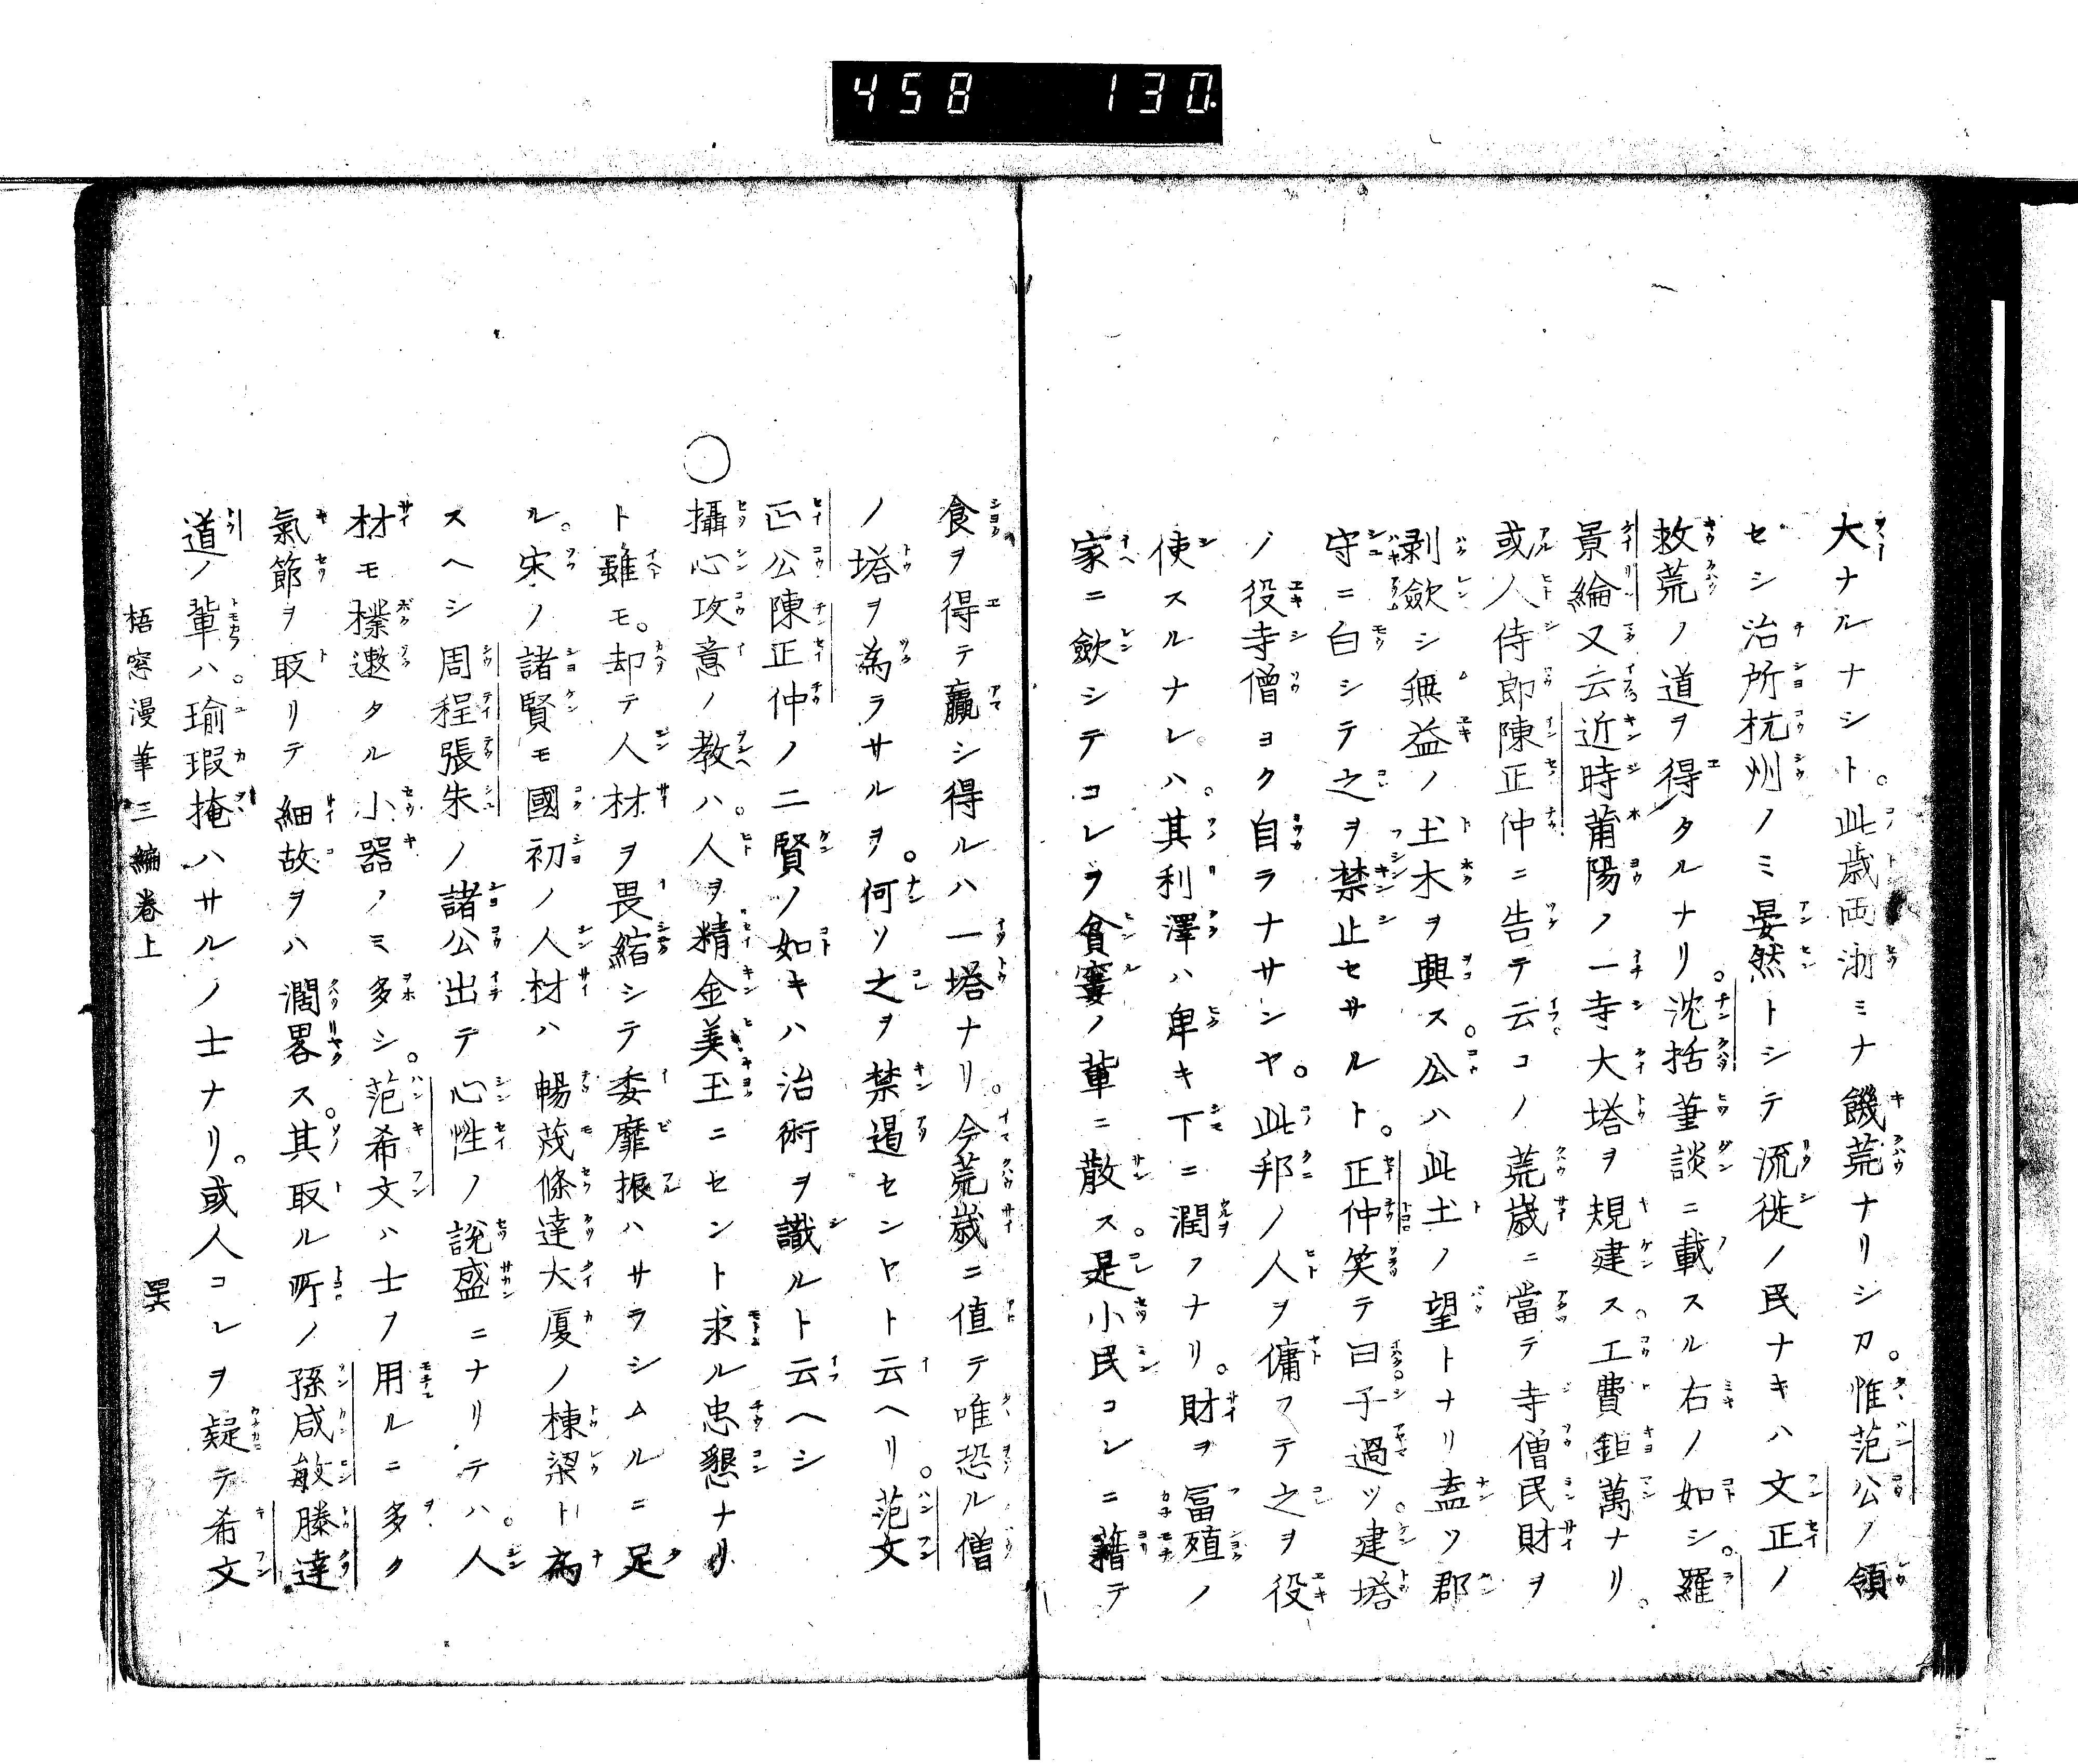 458 130
大ナルナシト。此歳両浙ミナ饑荒ナリシカ。惟范公ノ領
セシ治所杭州ノミ晏然トシテ流徙ノ民ナキハ文正ノ
救荒ノ道ヲ得タルナリ。沈括筆談ニ載スル右ノ如シ。羅
景綸又云近時莆陽ノ一寺大塔ヲ規建ス。工費鉅萬ナリ。
或人侍郎陳正仲ニ告テ云コノ荒歳ニ當テ寺僧民財ヲ
剥歛シ無益ノ土木ヲ興ス。公ハ此土ノ望トナリ盍ソ郡
守ニ白シテ之ヲ禁止セサルト。正仲笑テ曰子過ツ。建塔
ノ役寺僧ヨク自ラナサンヤ。此邦ノ人ヲ傭フテ之ヲ役
使スルナレハ。其利澤ハ卑キ下ニ潤フナリ。財ヲ冨殖ノ
家ニ歛シテコレヲ貧窶ノ輩ニ散ス。是小民コレニ藉テ
食ヲ得テ贏シ得ルハ一塔ナリ。今荒歳ニ値テ唯恐ル僧
ノ塔ヲ為ラサルヲ。何ソ之ヲ禁遏センヤト云ヘリ。范文
正公陳正仲ノ二賢ノ如キハ治術ヲ識ルト云ヘシ
○攝心攻意ノ教ハ。人ヲ精金美玉ニセント求ル忠懇ナリ
ト雖モ。却テ人材ヲ畏縮シテ委靡振ハサラシムルニ足
ル。宋ノ諸賢モ國初ノ人材ハ暢茂條達大厦ノ棟梁ト為
スヘシ周程張朱ノ諸公出テ心性ノ説盛ニナリテハ。人
材モ樸遬タル小器ノミ多シ。范希文ハ士ヲ用ルニ多ク
氣節ヲ取リテ細故ヲハ濶畧ス。其取ル所ノ孫咸敏滕達
道ノ輩ハ。瑜瑕掩ハサルノ士ナリ。或人コレヲ疑テ希文
梧窓漫筆三編卷上 罘